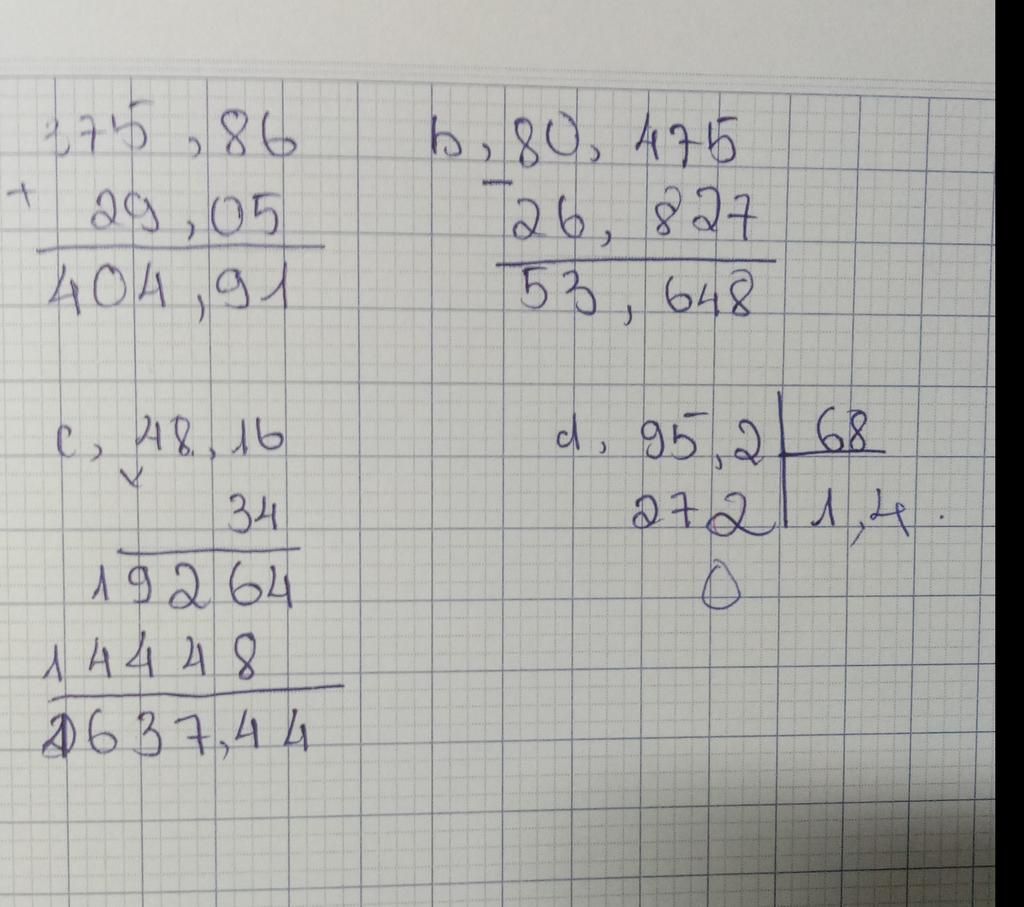 375,86
+
29,05
404,91
b, 80,475
-
26,827
53,648
c, 48,16
34
19264
14448
1637,44
d, 95,2 68
272 1,4.
0